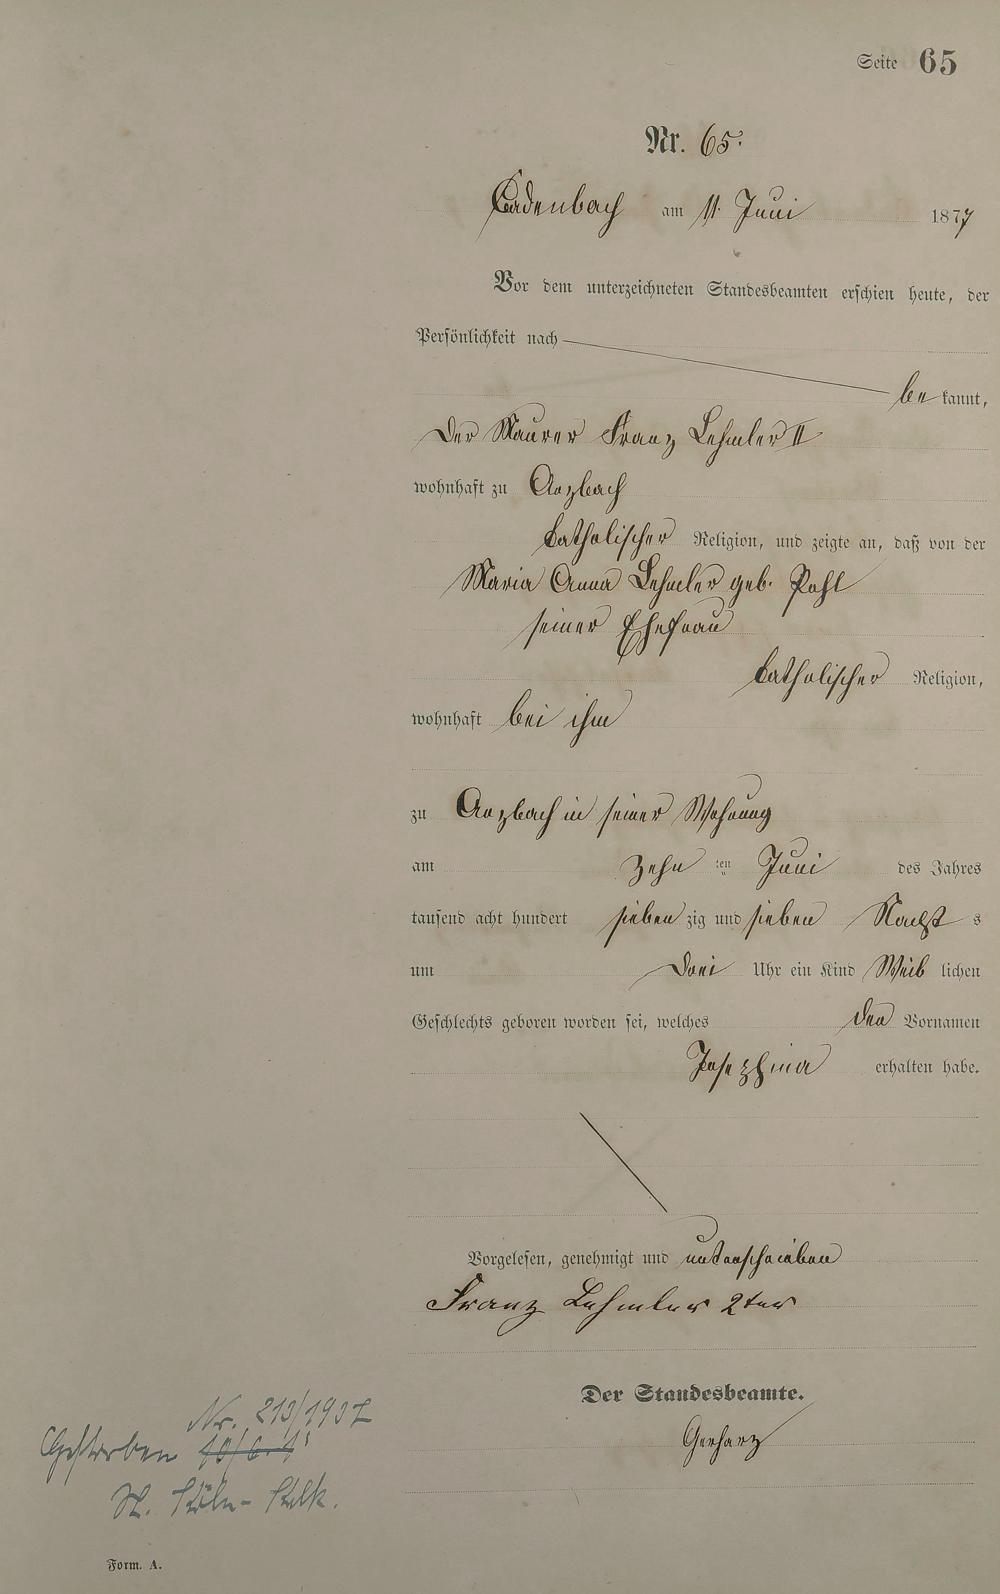 Seite 65
Nr. 65.
Cadenbach am 11. Juni 1877
Vor dem unterzeichneten Standesbeamten erschien heute, der
Persönlichkeit nach
be kannt,
der Maurer Franz Lehmler II
wohnhaft zu Arzbach
katholischer Religion, und zeigte an, daß von der
Maria Anna Lehmler geb. Pohl
seiner Ehefrau
katholischer Religion,
wohnhaft bei ihm
zu Arzbach in seiner Wohnung
am zehn ten Juni des Jahres
tausend acht hundert sieben zig und sieben Nacht s
um drei Uhr ein Kind Weib lichen
Geschlechts geboren worden sei, welches den Vornamen
Josephina erhalten habe.
Vorgelesen, genehmigt und unterschrieben
Franz Lehmler 2ter
Der Standesbeamte.
Gerharz
Nr. 213/1937
Gestorben
St. Köln-Kalk.
Form. A.